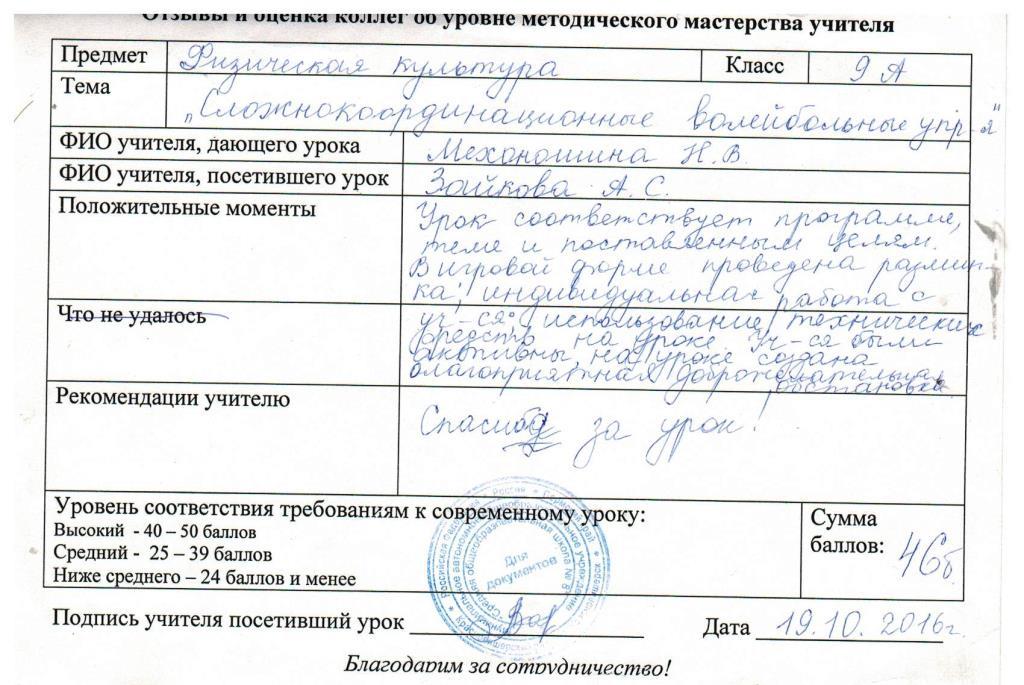 Отзывы и оценка коллег об уровне методического мастерства учителя
Предмет Физическая культура Класс 9 А
Тема
„Сложнокоординационные волейбольные упр-я"
ФИО учителя, дающего урока Механошина Н.В.
ФИО учителя, посетившего урок Зайкова А.С.
Положительные моменты Урок соответствует программе,
теме и поставленным целям.
В игровой форме проведена размин-
ка; индивидуальная работа с
Что не удалось уч-ся; использование технических
средств на уроке. Уч-ся были
активны, на уроке создана
благоприятная доброжелательная
обстановка.
Рекомендации учителю
Спасибо за урок!
Уровень соответствия требованиям к современному уроку:
Высокий - 40 – 50 баллов
Средний - 25 – 39 баллов
Ниже среднего – 24 баллов и менее
Сумма
баллов: 46б.
Для
документов
Подпись учителя посетивший урок Дата 19.10.2016г.
Благодарим за сотрудничество!